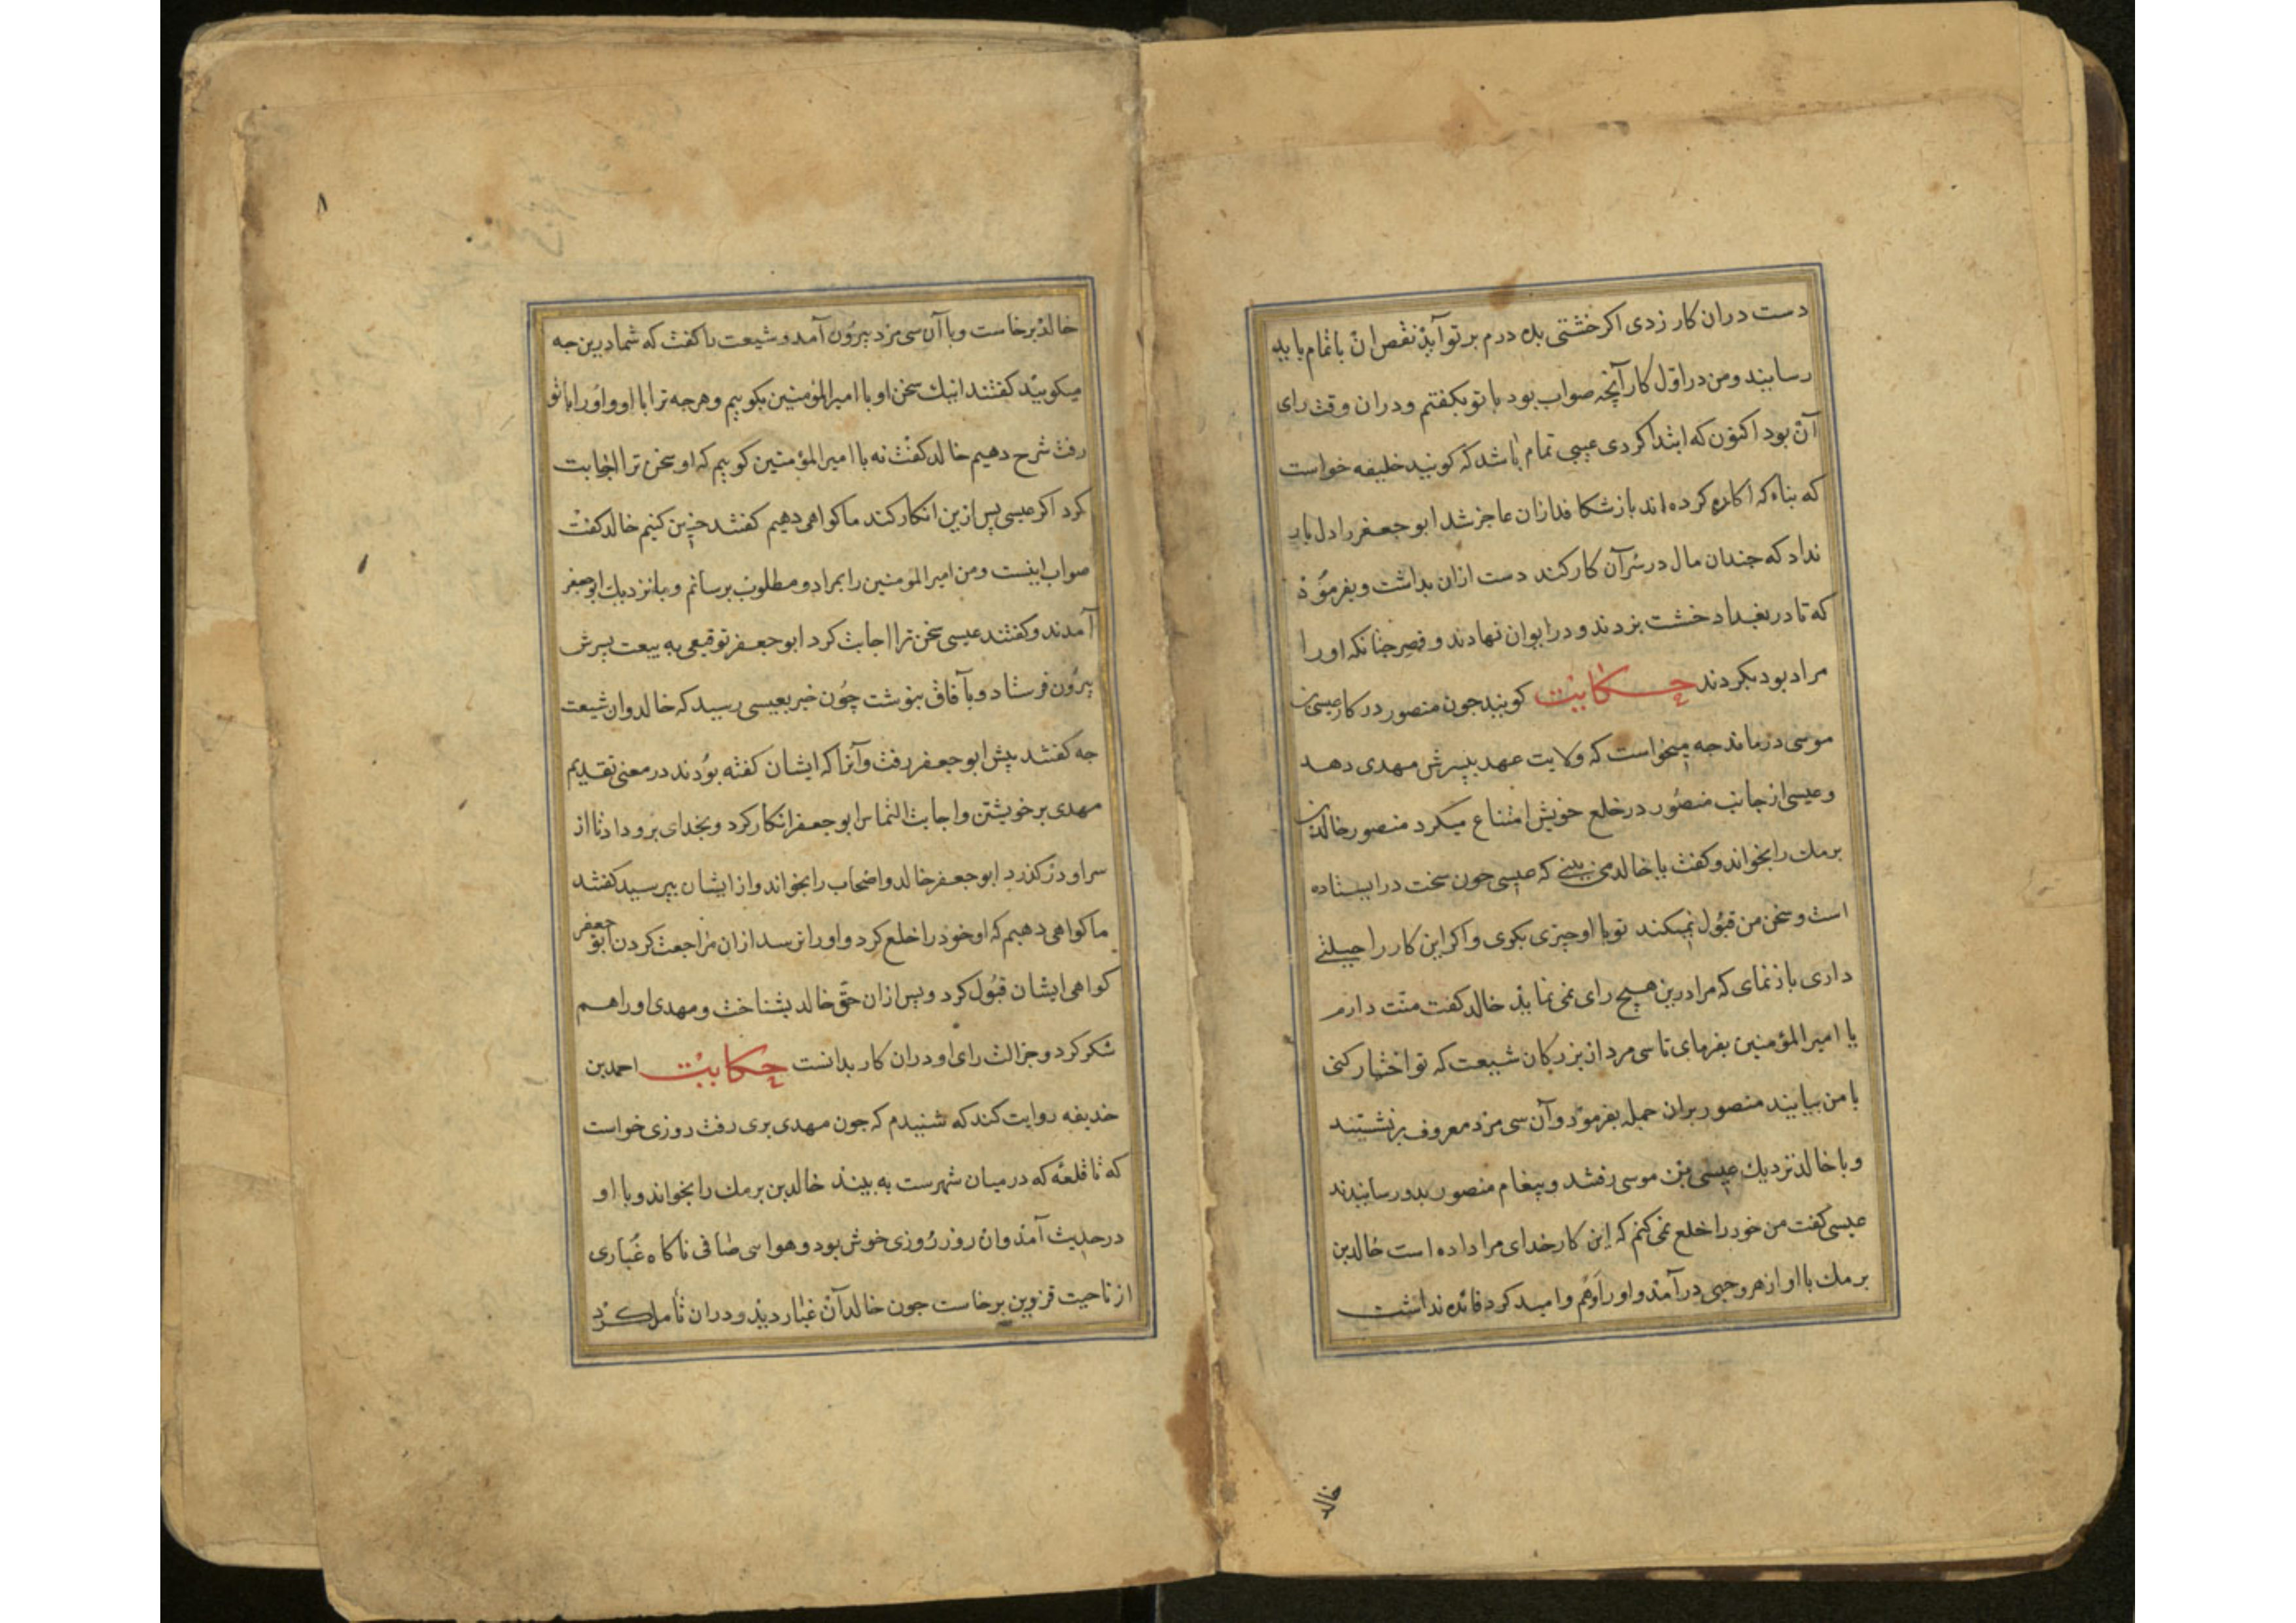 دست دران کار زدی اکر خشتی بده درم بر تو آیذ نقص ان باتمام باید
رسانید و من در اوّل کار آنچه صواب بود با تو بکفتم و دران وقت رای
آن بود اکنون که ابتدا کردی عیبی تمام باشد که کویند خلیفه خواست
که بناء که اکاره کرده اند باز شکافد ازان عاجز شد ابو جعفر را دل بار
نداد که جندان مال در سر آن کار کند دست ازان بداشت و بفرموذ
که تا در بغداد خشت بزدند و در ایوان نهادند و قصر جنانکه او را
مراد بود بکردند حکایت کویند جون منصور در کار عیسی بن
موسی درماند جه میخواست که ولایت عهد بپسرش مهدی دهد
و عیسی از جانب منصور در خلع خویش امتناع میکرد منصور خالد بن
برمك را بخواند و کفت یا خالد می بینی که عیسی جون سخت در ایستاده
است و سخن من قبول نمیکند تو با او چیزی بکوی و اکر این کار را حیلتی
داری باز نمای که مرا درین هیچ رای نمی نماید خالد کفت منّت دارم
یا امیر المؤمنین بفرمای تا سی مرد از بزرکان شیعت که تو اختیار کنی
با من بیایند منصور بران جمله بفرمود و آن سی مرد معروف برنشستند
و با خالد نزدیك عیسی بن موسی رفتند و پیغام منصور بدو رسانیدند
عیسی کفت من خود را خلع نمی کنم که این کار خدای مرا داده است خالد بن
برمك با او از هر وجهی درآمد و او را وهم و امید کرد فائده نداشت
خالد
۸
خالد برخاست و با آن سی مرد بیرون آمد و شیعت را کفت که شما درین جه
میکویید کفتند اینك سخن او با امیر المؤمنین بکوییم و هرجه ترا با او و او را با تو
رفت شرح دهیم خالد کفت نه با امیر المؤمنین کوییم که او سخن ترا اجابت
کرد اکر عیسی پس ازین انکار کند ما کواهی دهیم کفتند چنین کنیم خالد کفت
صواب اینست و من امیر المؤمنین را بمراد و مطلوب برسانم و با نزدیك ابو جعفر
آمدند و کفتند عیسی سخن ترا اجابت کرد ابو جعفر توقیعی به بیعت پسرش
بیرون فرستاد و بآفاق بنوشت چون خبر بعیسی رسید که خالد و ان شیعت
جه کفتند پیش ابو جعفر رفت و آنرا که ایشان کفته بودند در معنی تقدیم
مهدی بر خویشتن و اجابت التماس ابو جعفر انکار کرد و بخدای برو داد تا از
سر او درکذرد ابو جعفر خالد و اصحاب را بخواند و از ایشان بپرسید کفتند
ما کواهی دهیم که او خود را خلع کرد و او را نرسد ازان مراجعت کردن ابو جعفر
کواهی ایشان قبول کرد و پس ازان حقّ خالد بشناخت و مهدی او را هم
شکر کرد و جزالت رای او دران کار بدانست حکایت احمد بن
خدیفه روایت کند که شنیدم که جون مهدی بری رفت روزی خواست
که تا قلعه که در میان شهرست به بیند خالد بن برمك را بخواند و با او
در حدیث آمد و ان روز روزی خوش بود و هواسی صافی ناکاه غباری
از ناحیت قزوین برخاست جون خالد آن غبار دید و دران تأمل کرد